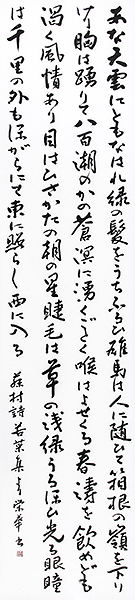 あな天雲にともなはれ緑の髪をうちふるひ雄馬は人に随ひて箱根の嶺を下り
けり胸は踊りて八百潮のかの蒼溟に湧くごとく喉はよせくる春濤を飲めども
渇く風情あり目はひさかたの朝の星睫毛は草の浅緑うるほひ光る眼瞳に
は千里の外もほがらにて東に照らし西に入る 藤村詩 若菜集より